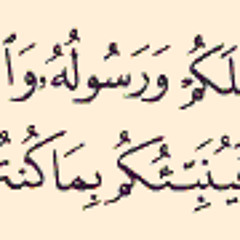 لَكُمْ وَرَسُولُهُۥ وَٱ
فَيُنَبِّئُكُمُ بِمَا كُنتُ